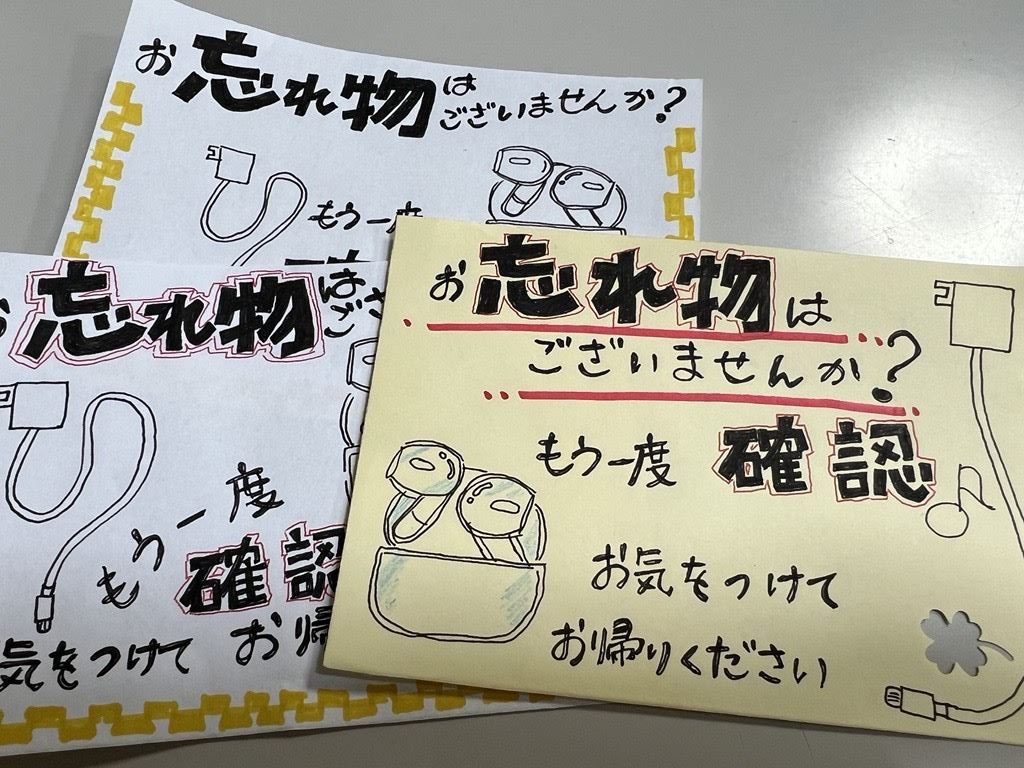 お忘れ物は
ございませんか？
もう一度
お忘れ物は
ござ
もう一度
確認
気をつけて お帰
お忘れ物は
ございませんか？
もう一度 確認
お気をつけて
お帰りください